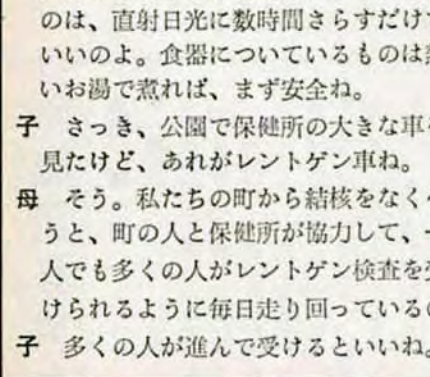 のは、直射日光に数時間さらすだけ
いいのよ。食器についているものは
いお湯で煮れば、まず安全ね。
子 さっき、公園で保健所の大きな車
見たけど、あれがレントゲン車ね。
母 そう。私たちの町から結核をなく
うと、町の人と保健所が協力して、
人でも多くの人がレントゲン検査を
けられるように毎日走り回っている
子 多くの人が進んで受けるといいね。